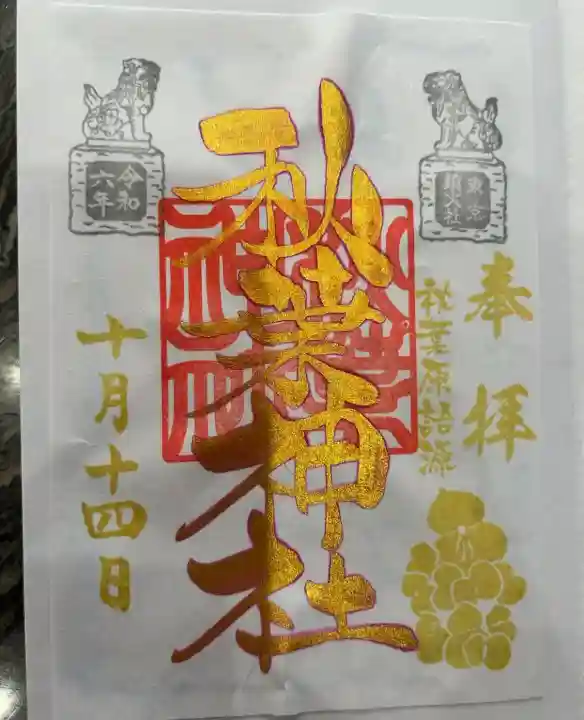 奉拝
東京
鎮火社
秋葉原語源
秋葉神社
令和
六年
十月十四日